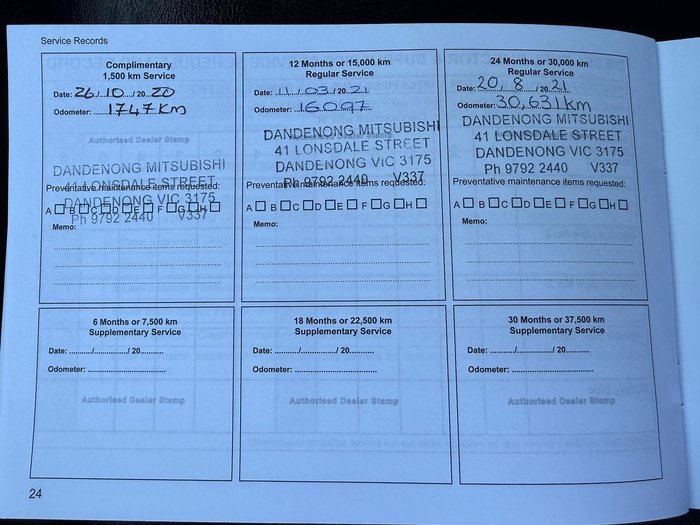 Service Records
Complimentary
1,500 km Service
Date: 26/10/2020
Odometer: 1747 Km
Authorised Dealer Stamp
DANDENONG MITSUBISHI
41 LONSDALE STREET
Preventative maintenance items requested:
DANDENONG VIC 3175
A B C D E F G H
Ph 9792 2440 V337
Memo:
12 Months or 15,000 km
Regular Service
Date: 11/03/2021
Odometer: 16097
DANDENONG MITSUBISHI
41 LONSDALE STREET
DANDENONG VIC 3175
Ph 9792 2440 V337
Preventative maintenance items requested:
A B C D E F G H
Memo:
24 Months or 30,000 km
Regular Service
Date: 20/8/2021
Odometer: 30,631km
DANDENONG MITSUBISHI
41 LONSDALE STREET
DANDENONG VIC 3175
Ph 9792 2440 V337
Preventative maintenance items requested:
A B C D E F G H
Memo:
6 Months or 7,500 km
Supplementary Service
Date: ........../........../ 20..........
Odometer: ..............................
Authorised Dealer Stamp
18 Months or 22,500 km
Supplementary Service
Date: ........../........../ 20..........
Odometer: ..............................
Authorised Dealer Stamp
30 Months or 37,500 km
Supplementary Service
Date: ........../........../ 20..........
Odometer: ..............................
Authorised Dealer Stamp
24